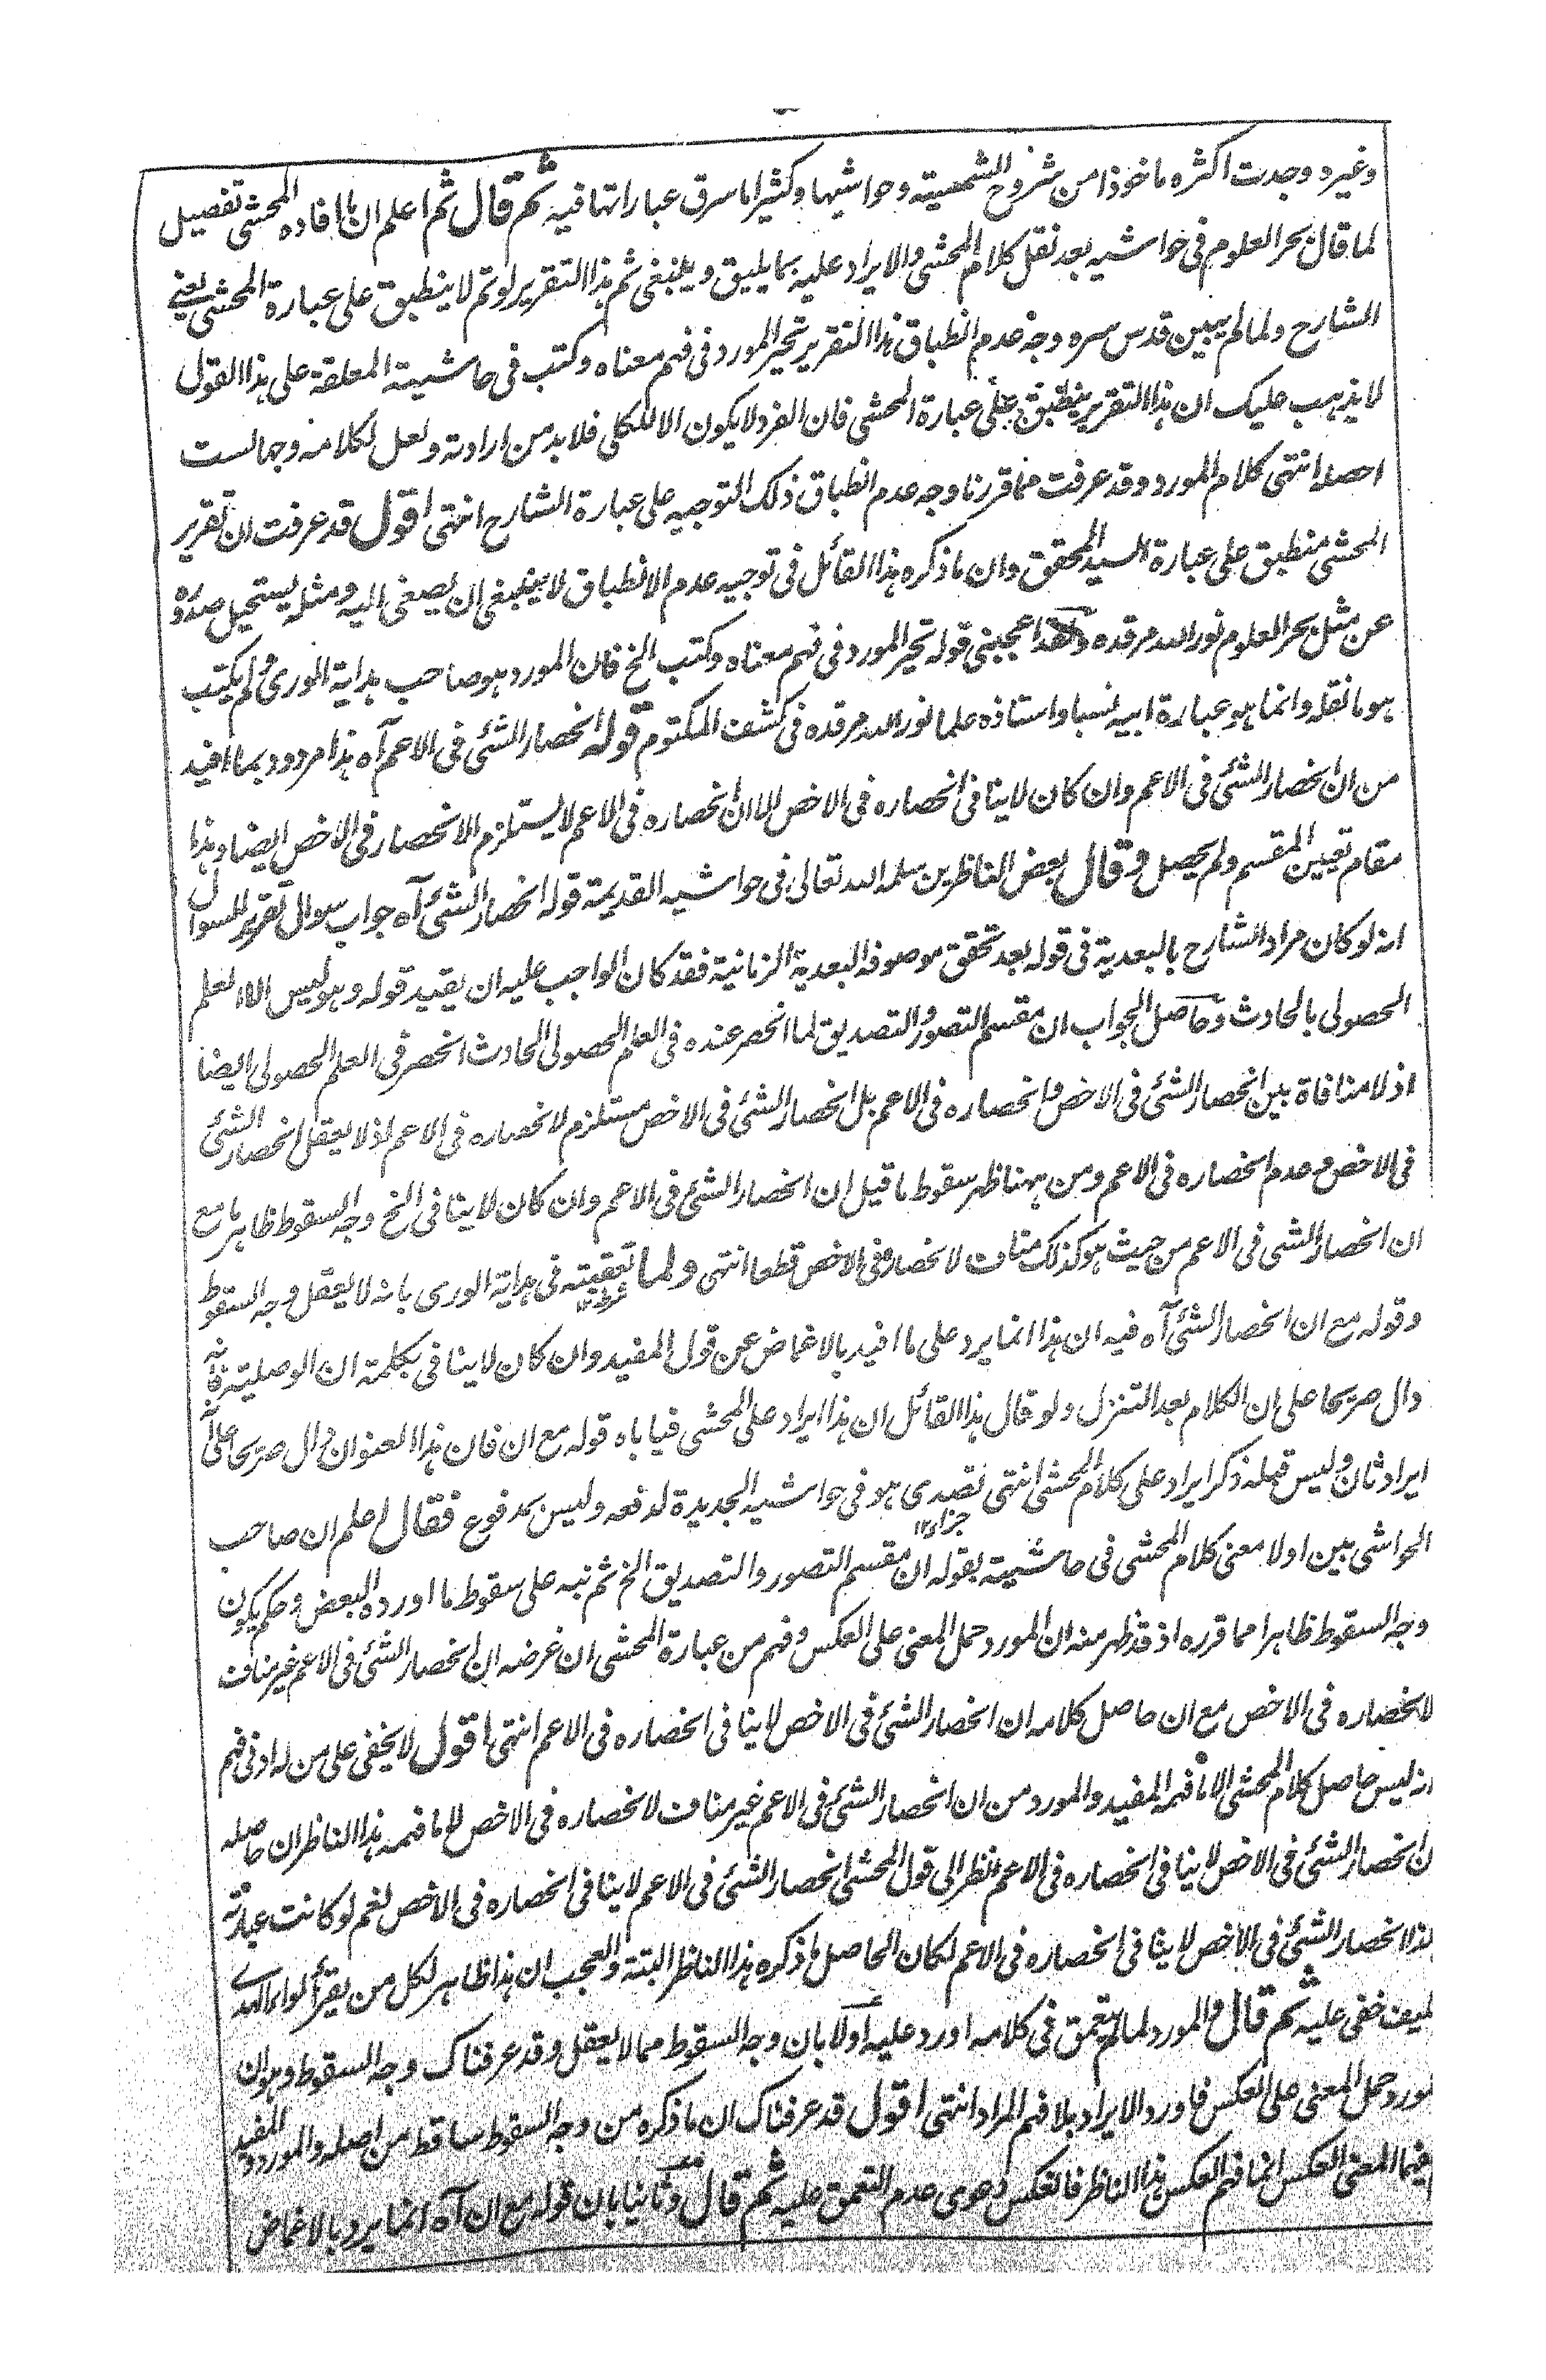 وغيره وجدت اكثره ماخوذا من شروح الشمسية وحواشيها وكثيرا ما سرق عباراتها فيه ثم قال ثم اعلم ان ما افاده المحشى تفصيل
لما قال بحر العلوم فى حواشيه بعد نقل كلام المحشى والايراد عليه بما يليق وينبغى ثم هذا التقرير لو تم لا ينطبق على عبارة المحشى يعنى
الشارح ولما لم يبين قدس سره وجه عدم انطباق هذا التقرير تحير المورد فى فهم معناه وكتب فى حاشيته المعلقة على هذا القول
لا يذهب عليك ان هذا التقرير ينطبق على عبارة المحشى فان الفرد لا يكون الا للكلى فلا بد من ارادته ولعل لكلامه وجها لست
احصله انتهى كلام المورد وقد عرفت مما قررنا وجه عدم انطباق ذلك التوجيه على عبارة الشارح انتهى اقول قد عرفت ان تقرير
المحشى منطبق على عبارة السيد المحقق وان ما ذكره هذا القائل فى توجيه عدم الانطباق لا ينبغى ان يصغى اليه ومثله يستحيل صدوره
عن مثل بحر العلوم نور الله مرقده ولقد اعجبنى قوله تحير المورد فى فهم معناه وكتب الخ فان المورد هو صاحب هداية الورى ولم يكتب
هو ما نقله وانما هو عبارة ابيه نسبا واستاذه علما نور الله مرقده فى كشف المكتوم قوله انحصار الشئ فى الاعم آه هذا مردود بما افيد
من ان انحصار الشئ فى الاعم وان كان لا ينافى انحصاره فى الاخص الا ان انحصاره فى الاعم لا يستلزم الانحصار فى الاخص ايضا وهذا
مقام تعيين المقسم ولم يحصل وقال بعض الناظرين سلمه الله تعالى فى حواشيه القديمة قوله انحصار الشئ آه جواب سوال تقرير السوال
انه لو كان مراد الشارح بالبعدية فى قوله بعد تحقق موصوفه البعدية الزمانية فقد كان الواجب عليه ان يقيد قوله وهو ليس الا العلم
الحصولى بالحادث وحاصل الجواب ان مقسم التصور والتصديق لما انحصر عنده فى العلم الحصولى الحادث انحصر فى العلم الحصولى ايضا
اذ لا منافاة بين انحصار الشئ فى الاخص وانحصاره فى الاعم بل انحصار الشئ فى الاخص مستلزم لانحصاره فى الاعم اذ لا يعقل انحصار الشئ
فى الاخص وعدم انحصاره فى الاعم ومن ههنا ظهر سقوط ما قيل ان انحصار الشئ فى الاعم وان كان لا ينافى الخ وجه السقوط ظاهر مع
ان انحصار الشئ فى الاعم من حيث هو كذلك مناف لانحصاره فى الاخص قطعا انتهى ولما تعقبته فى هداية الورى بانه لا يعقل وجه السقوط
شرط ١٢
وقوله مع ان انحصار الشئ آه فيه ان هذا انما يرد على ما افيد بالاغماض عن قول المفيد وان كان لا ينافى بكلمة ان الوصلية فانه
دال صريحا على ان الكلام بعد التنزل ولو قال هذا القائل ان هذا ايراد على المحشى فياباه قوله مع ان فان هذا العنوان دال صريحا على انه
ايراد ثان وليس قبله ذكر ايراد على كلام المحشى انتهى تصدى هو فى حواشيه الجديدة لدفعه وليس بمدفوع فقال اعلم ان صاحب
جزاء ١٢
الحواشى بين اولا معنى كلام المحشى فى حاشيته بقوله ان مقسم التصور والتصديق الخ ثم نبه على سقوط ما اورده البعض وحكم بكون
وجه السقوط ظاهرا مما قرره اذ قد ظهر منه ان المورد حمل المعنى على العكس وفهم من عبارة المحشى ان غرضه ان انحصار الشئ فى الاعم غير مناف
لانحصاره فى الاخص مع ان حاصل كلامه ان انحصار الشئ فى الاخص لا ينافى انحصاره فى الاعم انتهى اقول لا يخفى على من له ادنى فهم
انه ليس حاصل كلام المحشى الا ما فهمه المفيد والمورد من ان انحصار الشئ فى الاعم غير مناف لانحصاره فى الاخص لا ما فهمه هذا الناظر ان حاصله
ان انحصار الشئ فى الاخص لا ينافى انحصاره فى الاعم انظر الى قول المحشى انحصار الشئ فى الاعم لا ينافى انحصاره فى الاخص نعم لو كانت عبارته
هكذا انحصار الشئ فى الاخص لا ينافى انحصاره فى الاعم لكان الحاصل ما ذكره هذا الناظر البتة والعجب ان هذا ظاهر لكل من يقرأ لواء الهدى
كيف خفى عليه ثم قال والمورد لما لم يتعمق فى كلامه اورد عليه اولا بان وجه السقوط مما لا يعقل وقد عرفناك وجه السقوط وهو ان
المورد حمل المعنى على العكس فاورد الايراد بلا فهم المراد انتهى اقول قد عرفناك ان ما ذكره من وجه السقوط ساقط من اصله والمورد والمفيد
فهما المعنى العكس انما فهم العكس هذا الناظر فانعكس دعوى عدم التعمق عليه ثم قال وثانيا بان قوله مع ان آه انما يرد بالاغماض